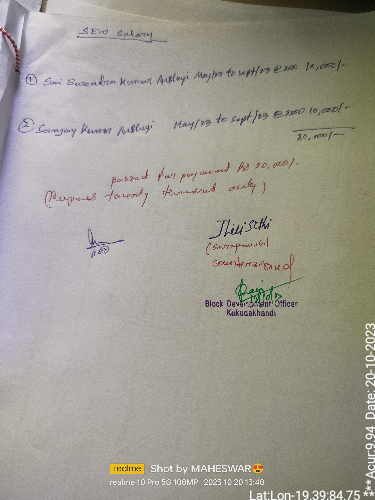 SEM Salary
① Sri Surendra Kumar May/23 to sept/23 @ 2000 10,000/-
② Sanjay Kumar May/23 to sept/23 @ 2000 10,000/-
20,000/-
passed for payment Rs 20,000/-
(Rupees twenty thousand only)
(Sarapanch)
countersigned
Block Development Officer
Kukudakhandi
realme Shot by MAHESWAR😍
realme 10 Pro 5G 108MP 2023.10.20 13:48
Lat:Lon-19.39:84.75 ***Acur:9.94 Date: 20-10-2023